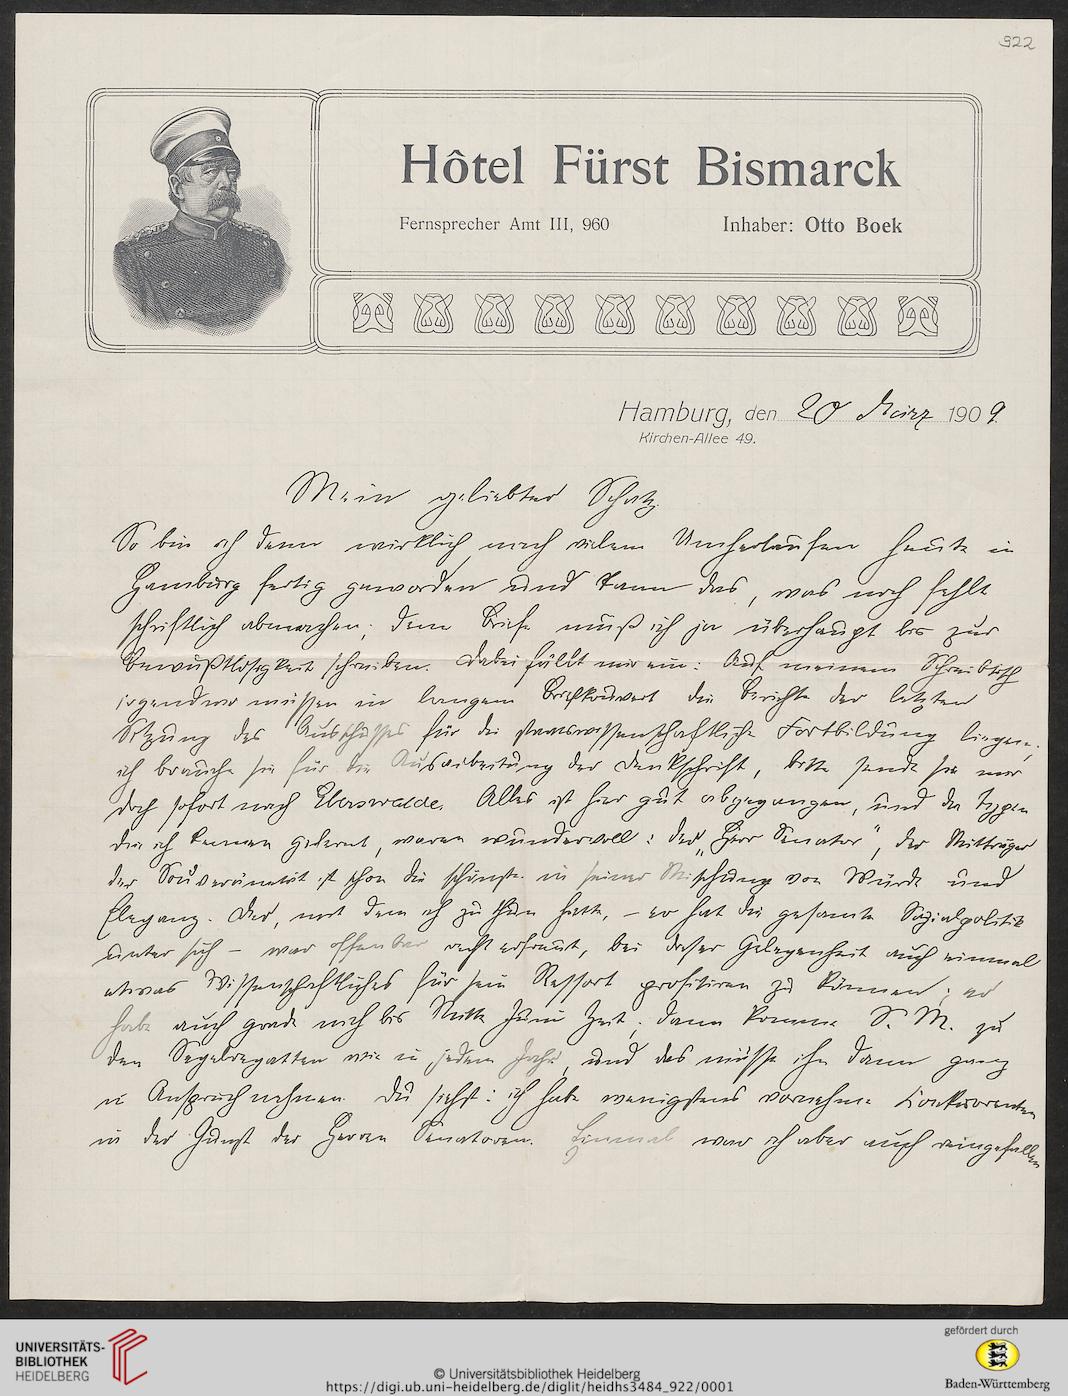 922
Hôtel Fürst Bismarck
Fernsprecher Amt III, 960 Inhaber: Otto Boek
Hamburg, den 20 März 1909.
Kirchen-Allee 49.
Mein geliebter Schatz,
So bin ich denn wirklich nach vielem Umherlaufen heute in
Hamburg fertig geworden und kann das, was noch fehlt
schriftlich abmachen; denn Briefe muß ich ja überhaupt bis zur
Bewußtlosigkeit schreiben. Dabei fällt mir ein: Auf meinem Schreibtisch
irgendwo müssen in langem Briefkouvert die Berichte der letzten
Sitzung des Ausschusses für die staatswissenschaftliche Fortbildung liegen;
ich brauche sie für die Ausarbeitung der Denkschrift, bitte sende sie mir
doch sofort nach Eberswalde. Alles ist hier gut abgegangen, und die Typen
die ich kennen gelernt, waren wundervoll: der „Herr Senator", der Mitträger
der Souveränetät ist schon die schönste in seiner Mischung von Würde und
Eleganz. Der, mit dem ich zu thun hatte, – er hat die gesamte Sozialpolitik
unter sich – war offenbar recht erfreut, bei dieser Gelegenheit auch einmal
etwas Wissenschaftliches für sein Ressort profitiren zu können; er
habe auch grade noch bis Mitte Juni Zeit; dann komme S. M. zu
den Segelregatten wie in jedem Jahr, und das müsse ihn dann ganz
in Anspruch nehmen. Du siehst: ich habe wenigstens vornehme Konkurrenten
in der Gunst der Herren Senatoren. Einmal war ich aber auch reingefallen
UNIVERSITÄTS-
BIBLIOTHEK
HEIDELBERG
© Universitätsbibliothek Heidelberg
https://digi.ub.uni-heidelberg.de/diglit/heidhs3484_922/0001
gefördert durch
Baden-Württemberg